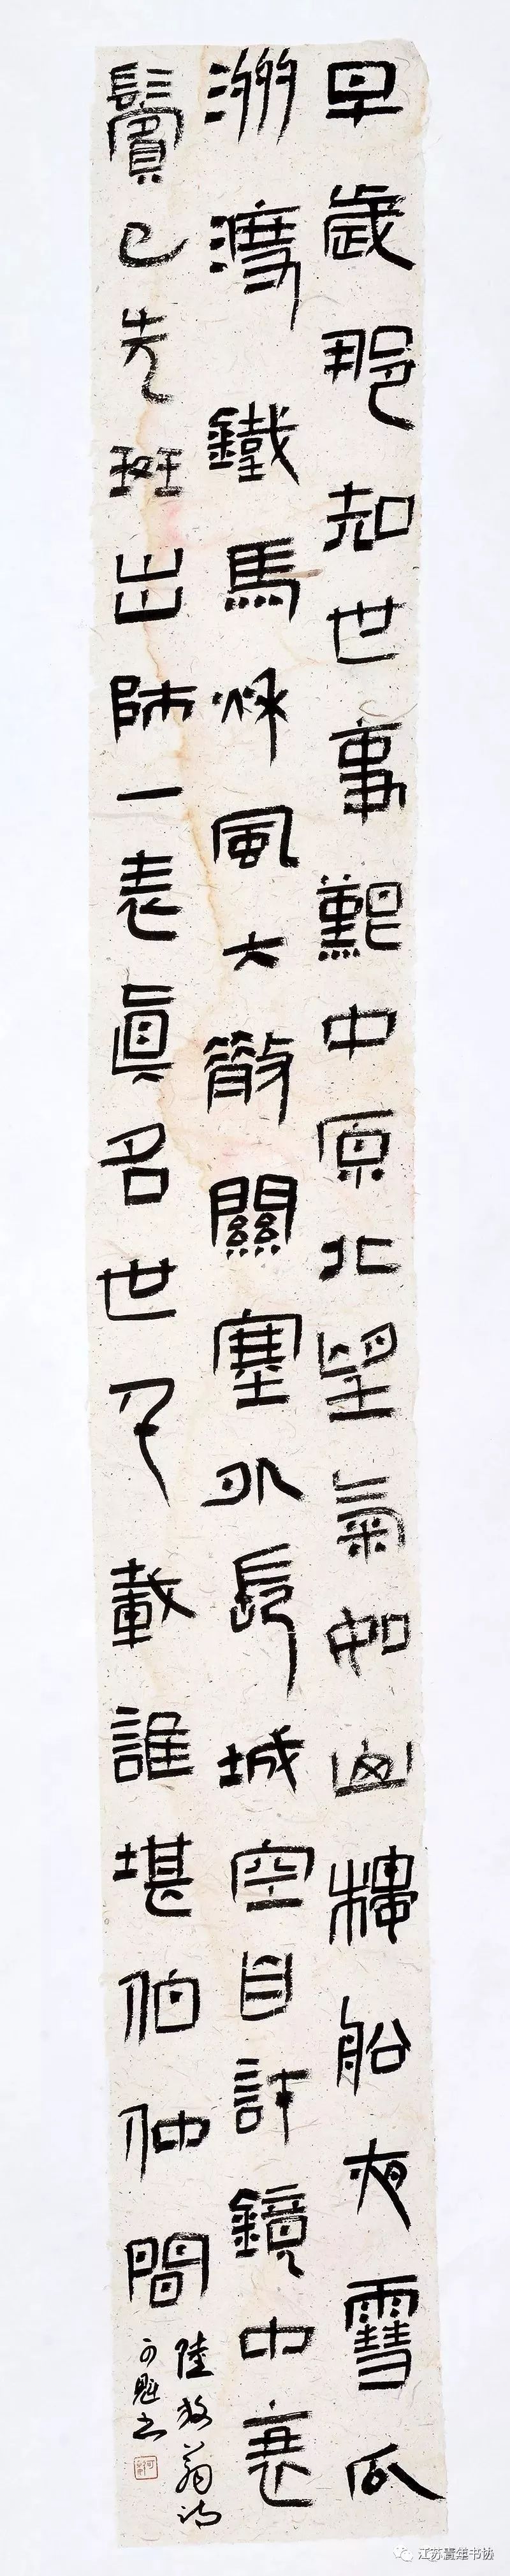 早歲那知世事艱中原北望氣如山樓船夜雪瓜
洲渡鐵馬秋風大散關塞長城空自許鏡中衰
鬢已先斑出師一表眞名世千載誰堪伯仲間
陸放翁詩
可魁书
江苏书协